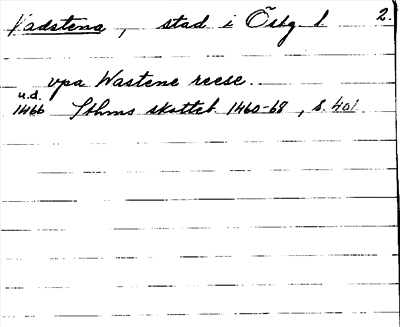 Vadstena, stad i Östg. l. 2.
vpa Wastene reese.
u.d.
1466 Sthms skotteb. 1460-68, s. 401.